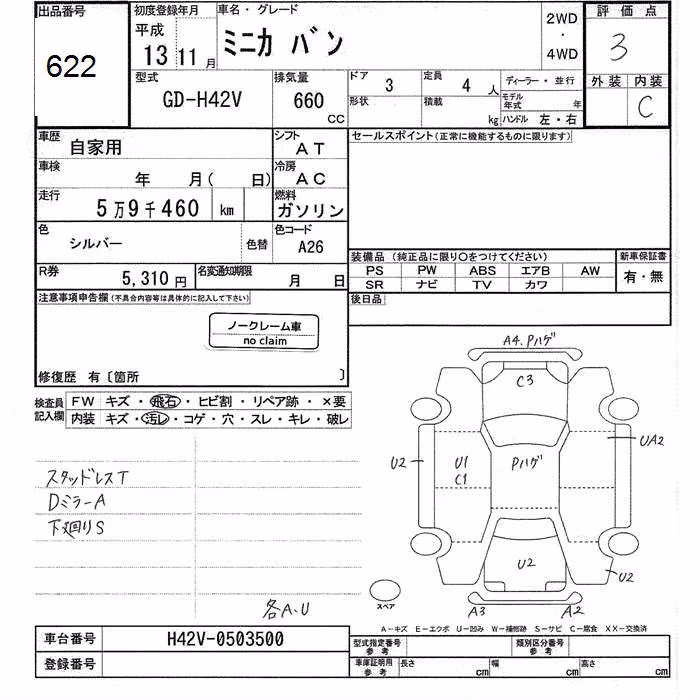 出品番号
622
初度登録年月
平成
13 11 月
車名・グレード
ミニカ バン
2WD
・
4WD
評価点
3
型式
GD-H42V
排気量
660
CC
ドア
3
定員
4 人
ディーラー・並行
形状
積載
kg
モデル
年式
年
ハンドル 左・右
外装 内装
C
車歴
自家用
シフト
AT
車検
年 月( 日)
冷房
AC
走行
5万9千460 km
燃料
ガソリン
色
シルバー
色替
色コード
A26
R券
5,310 円
名変通知期限
月 日
セールスポイント(正常に機能するものに限ります)
装備品 (純正品に限り〇をつけてください)
新車保証書
PS PW ABS エアB AW
有・無
SR ナビ TV カワ
後日品
注意事項申告欄(不具合内容等は具体的に記入して下さい)
ノークレーム車
no claim
修復歴 有〔箇所 〕
検査員
記入欄
FW キズ・飛石・ヒビ割・リペア跡・×要
内装 キズ・汚レ・コゲ・穴・スレ・キレ・破レ
スタッドレスT
DミラーA
下廻りS
各A.U
A4.Pハゲ
C3
UA2
U2
U1
C1
Pハゲ
U2
U2
スペア
A3
A2
A−キズ E−エクボ U−凹み W−補修跡 S−サビ C−腐食 XX−交換済
車台番号
H42V-0503500
登録番号
型式指定番号
参考
類別区分番号
参考
車庫証明用
参考
長さ
cm
幅
cm
高さ
cm